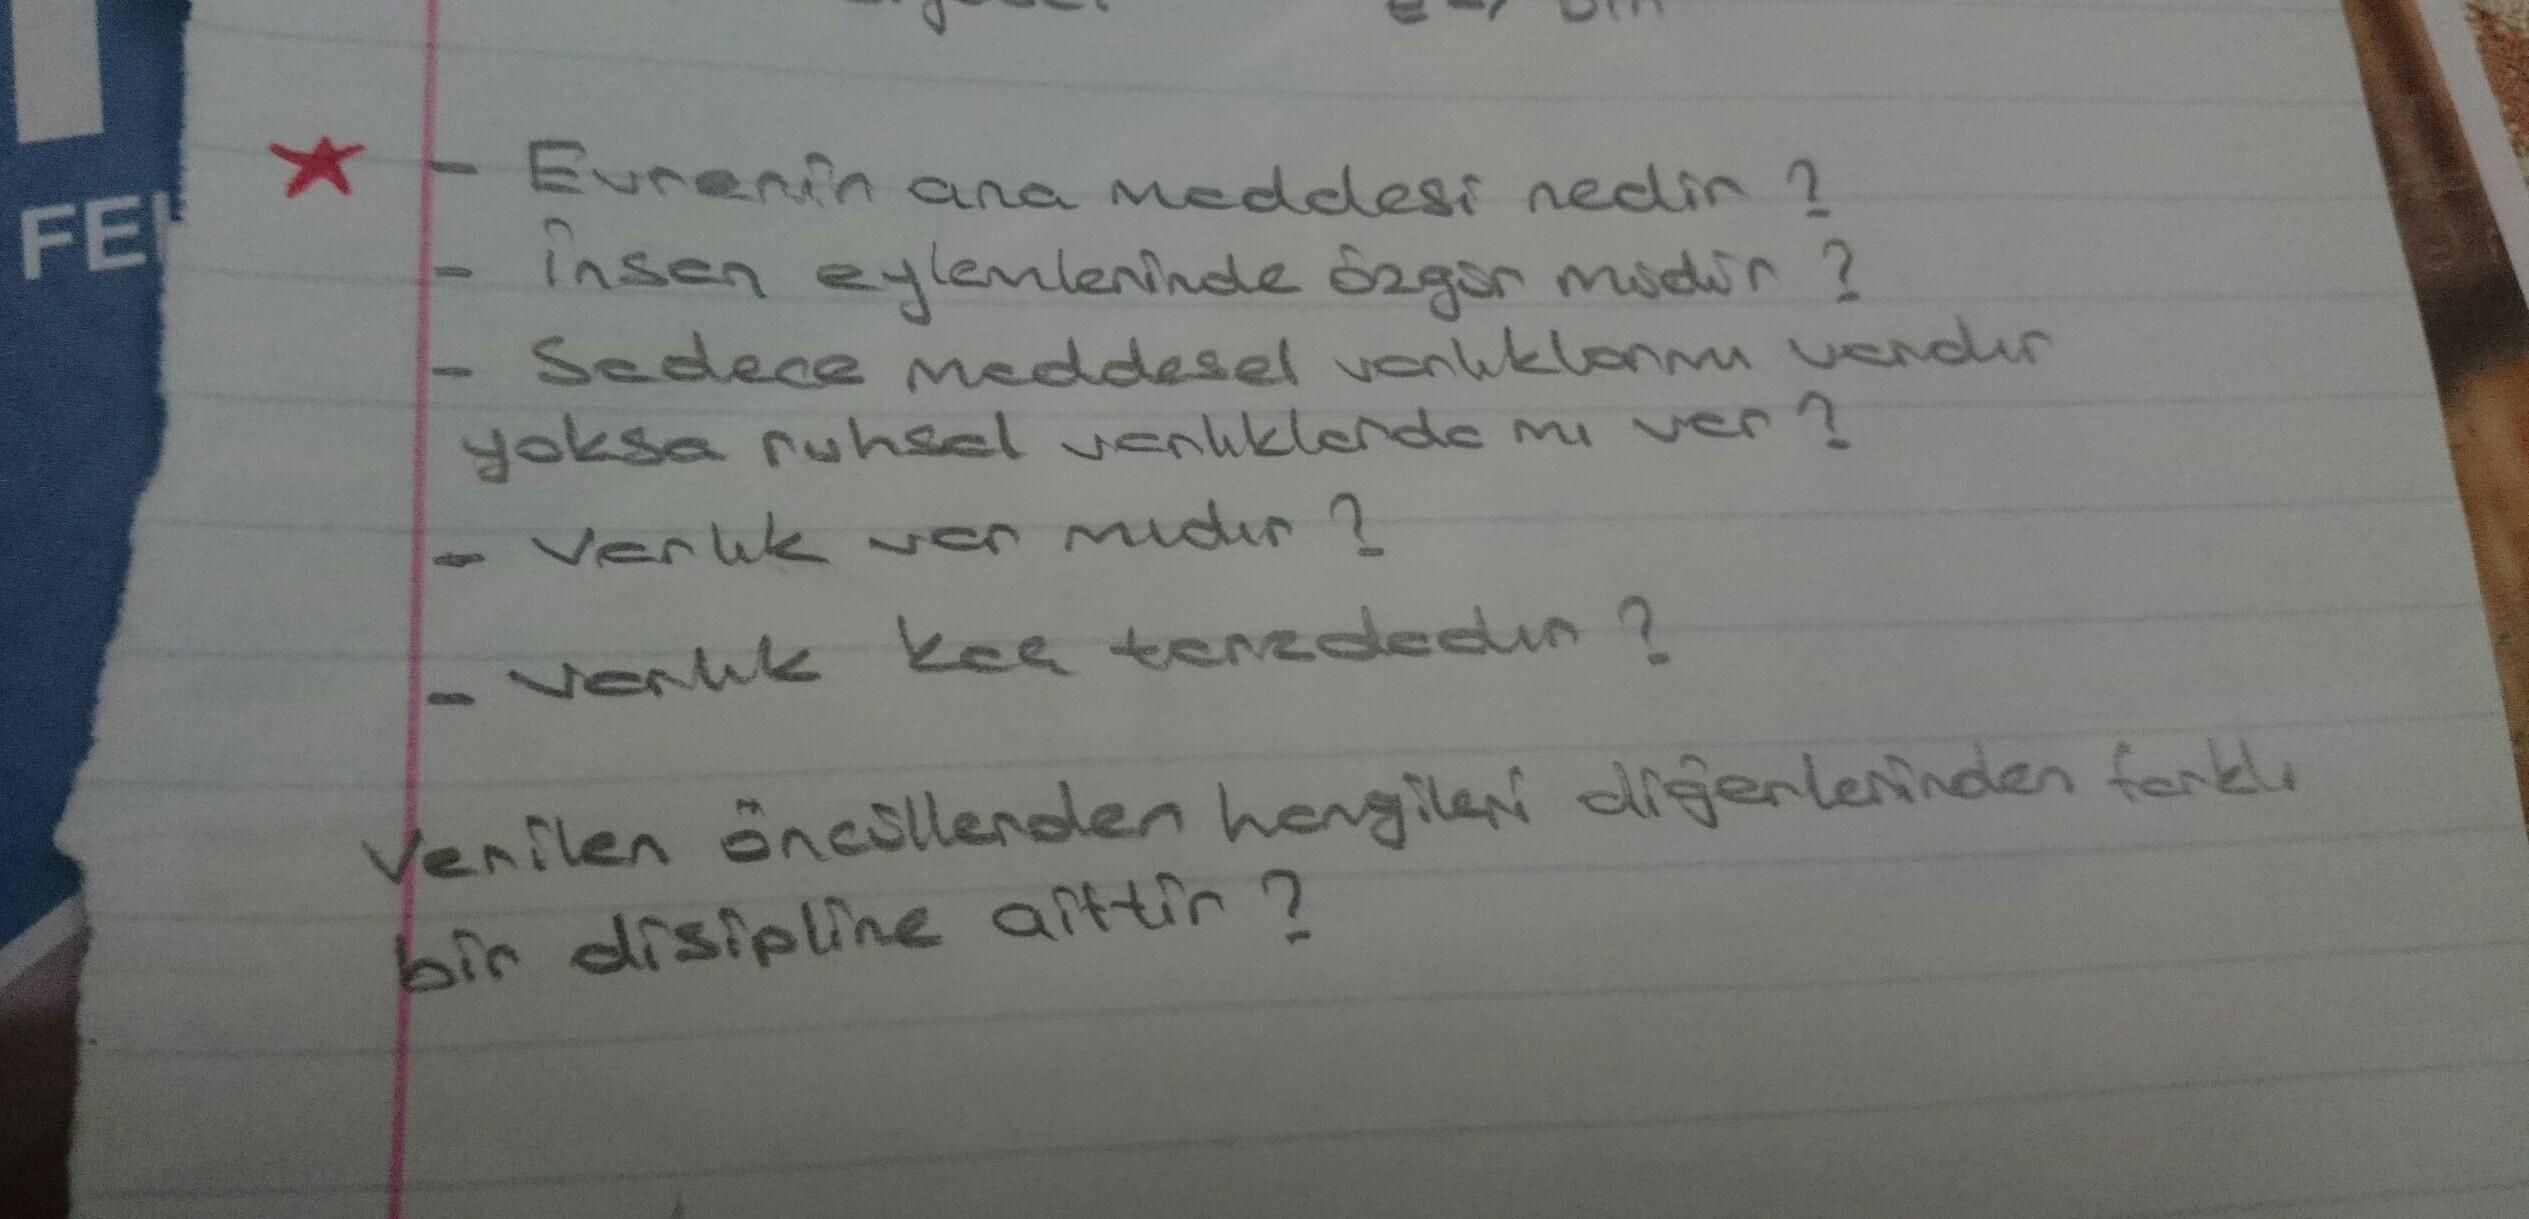 FEI
- Evrenin ana maddesi nedir ?
- İnsan eylemlerinde özgür müdür ?
- Sadece maddesel varlıklarmı vardır
yoksa ruhsal varlıklarda mı var ?
- Varlık var mıdır ?
- Varlık kaç tarzdadır ?
Verilen öncüllerden hangileri diğerlerinden farklı
bir disipline aittir ?